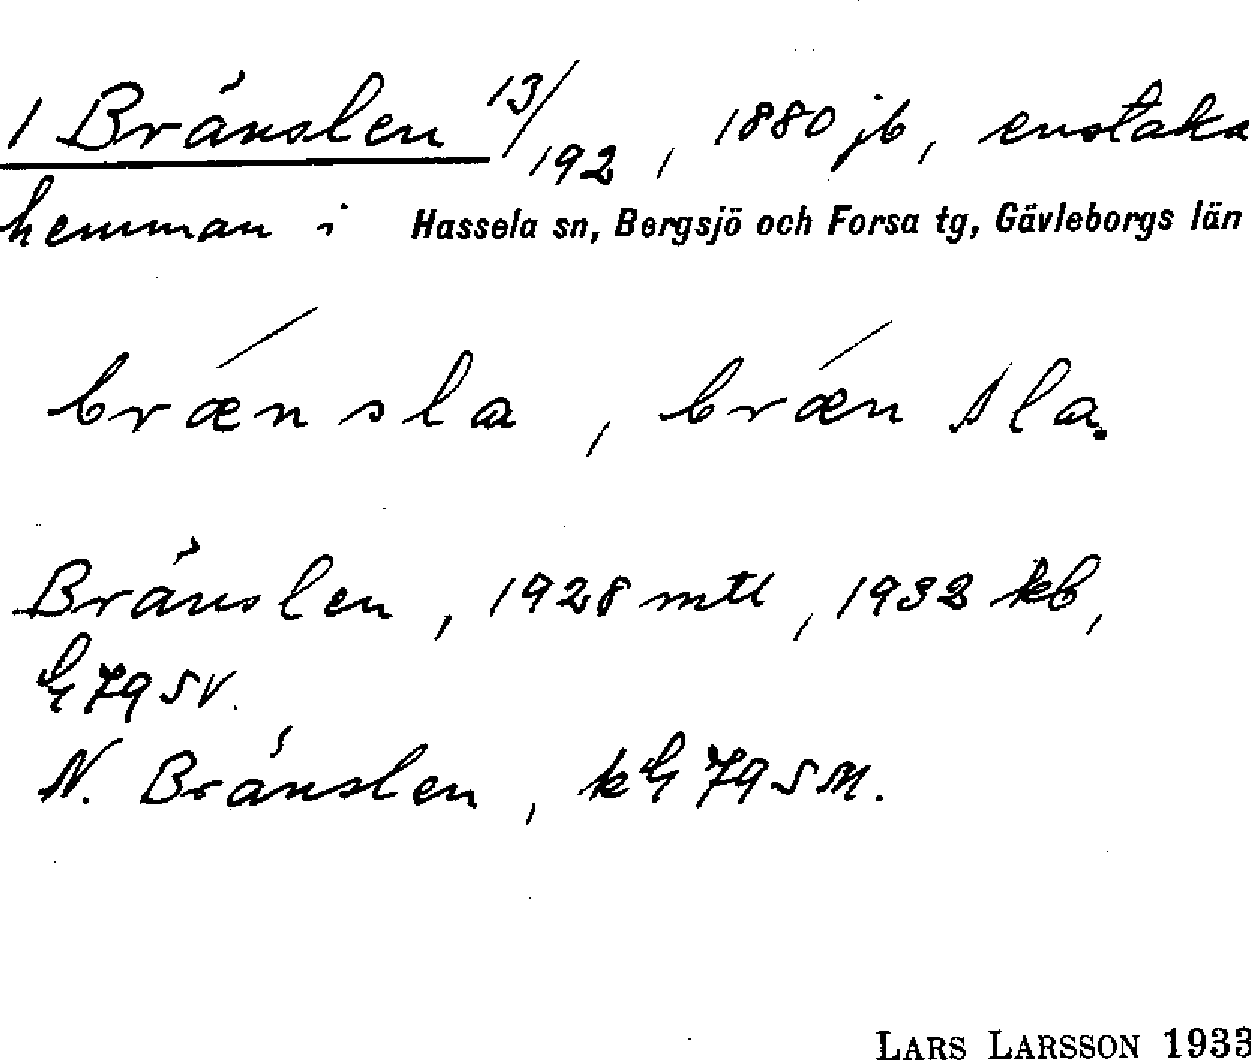 1 Bränslen 13/192, 1880 jb, enstaka
hemman i Hassela sn, Bergsjö och Forsa tg, Gävleborgs län
brǽnsla, brǽnsla.
Bränslen, 1928 mtl, 1932 kb,
G 79 SV.
N. Bränslen, kG 79 SM.
LARS LARSSON 1933